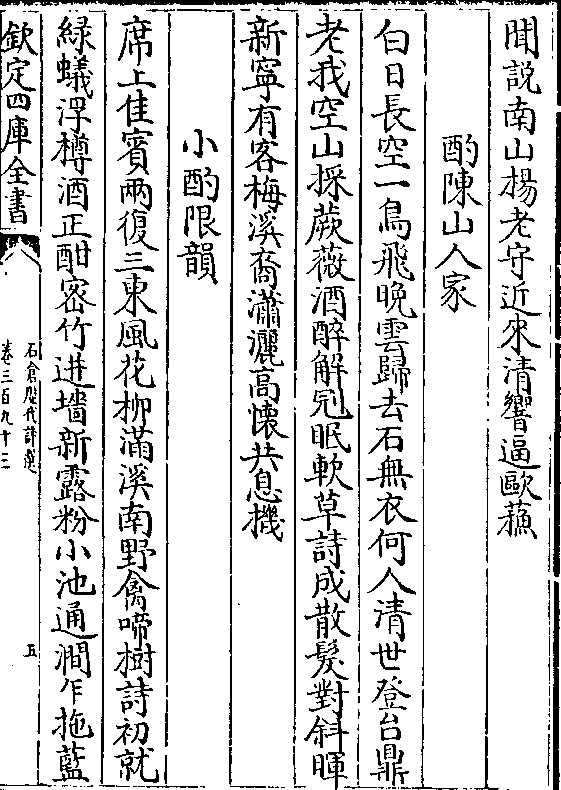 聞説南山楊老守近来清響逼歐蘓
酌陳山人家
白日長空一鳥飛晩雲歸去石無衣何人清世登台鼎
老我空山採蕨薇酒醉解冠眠軟草詩成散髮對斜暉
新寧有客梅溪裔瀟灑高懷共息機
小酌限韻
席上佳賓兩復三東風花柳滿溪南野禽啼樹詩初就
緑蟻浮樽酒正酣宻竹迸墻新露粉小池通澗乍拖藍
欽定四庫全書
石倉歴代詩選
卷三百九十三
五